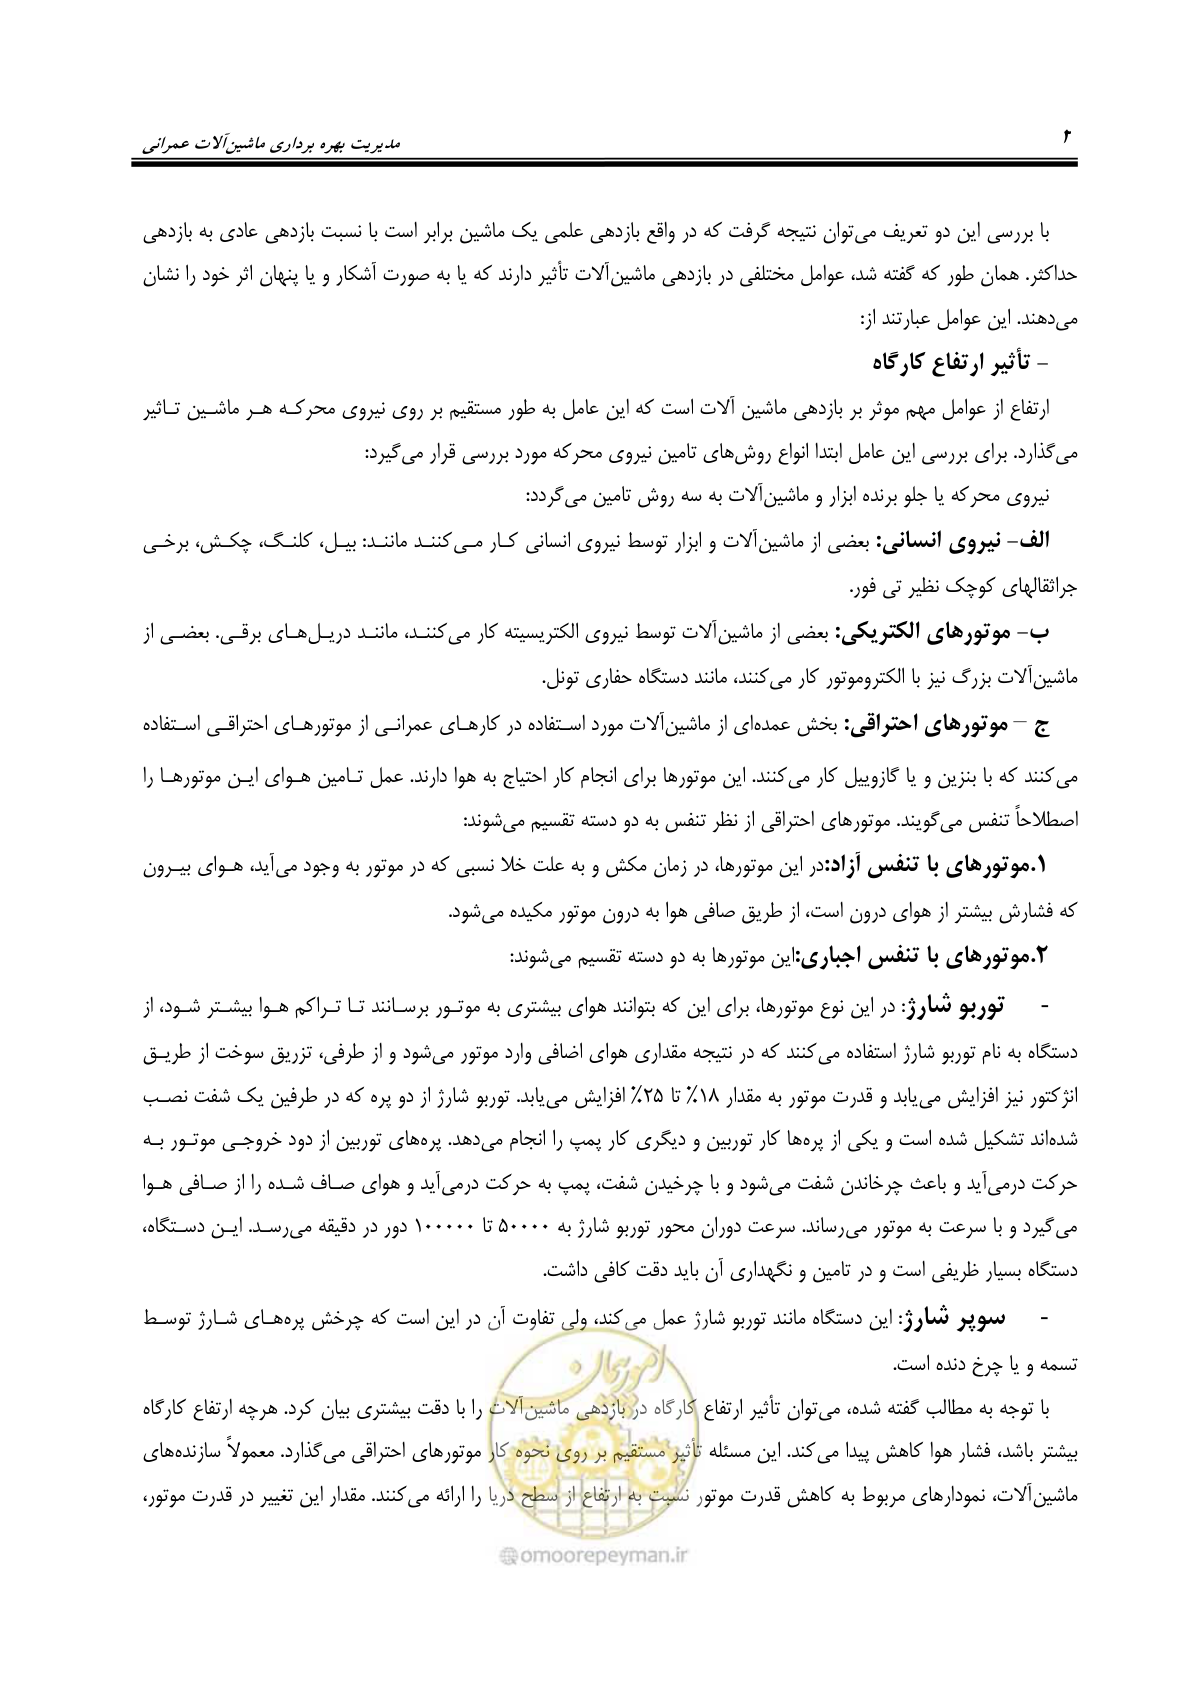 ۲
مدیریت بهره برداری ماشین‌آلات عمرانی
با بررسی این دو تعریف می‌توان نتیجه گرفت که در واقع بازدهی علمی یک ماشین برابر است با نسبت بازدهی عادی به بازدهی
حداکثر. همان طور که گفته شد، عوامل مختلفی در بازدهی ماشین‌آلات تأثیر دارند که یا به صورت آشکار و یا پنهان اثر خود را نشان
می‌دهند. این عوامل عبارتند از:
– تأثیر ارتفاع کارگاه
ارتفاع از عوامل مهم موثر بر بازدهی ماشین آلات است که این عامل به طور مستقیم بر روی نیروی محرکه هر ماشین تاثیر
می‌گذارد. برای بررسی این عامل ابتدا انواع روش‌های تامین نیروی محرکه مورد بررسی قرار می‌گیرد:
نیروی محرکه یا جلو برنده ابزار و ماشین‌آلات به سه روش تامین می‌گردد:
الف– نیروی انسانی: بعضی از ماشین‌آلات و ابزار توسط نیروی انسانی کار می‌کنند مانند: بیل، کلنگ، چکش، برخی
جراثقالهای کوچک نظیر تی فور.
ب– موتورهای الکتریکی: بعضی از ماشین‌آلات توسط نیروی الکتریسیته کار می‌کنند، مانند دریل‌های برقی. بعضی از
ماشین‌آلات بزرگ نیز با الکتروموتور کار می‌کنند، مانند دستگاه حفاری تونل.
ج – موتورهای احتراقی: بخش عمده‌ای از ماشین‌آلات مورد استفاده در کارهای عمرانی از موتورهای احتراقی استفاده
می‌کنند که با بنزین و یا گازوییل کار می‌کنند. این موتورها برای انجام کار احتیاج به هوا دارند. عمل تامین هوای این موتورها را
اصطلاحاً تنفس می‌گویند. موتورهای احتراقی از نظر تنفس به دو دسته تقسیم می‌شوند:
۱.موتورهای با تنفس آزاد:در این موتورها، در زمان مکش و به علت خلا نسبی که در موتور به وجود می‌آید، هوای بیرون
که فشارش بیشتر از هوای درون است، از طریق صافی هوا به درون موتور مکیده می‌شود.
۲.موتورهای با تنفس اجباری:این موتورها به دو دسته تقسیم می‌شوند:
- توربو شارژ: در این نوع موتورها، برای این که بتوانند هوای بیشتری به موتور برسانند تا تراکم هوا بیشتر شود، از
دستگاه به نام توربو شارژ استفاده می‌کنند که در نتیجه مقداری هوای اضافی وارد موتور می‌شود و از طرفی، تزریق سوخت از طریق
انژکتور نیز افزایش می‌یابد و قدرت موتور به مقدار ۱۸٪ تا ۲۵٪ افزایش می‌یابد. توربو شارژ از دو پره که در طرفین یک شفت نصب
شده‌اند تشکیل شده است و یکی از پره‌ها کار توربین و دیگری کار پمپ را انجام می‌دهد. پره‌های توربین از دود خروجی موتور به
حرکت درمی‌آید و باعث چرخاندن شفت می‌شود و با چرخیدن شفت، پمپ به حرکت درمی‌آید و هوای صاف شده را از صافی هوا
می‌گیرد و با سرعت به موتور می‌رساند. سرعت دوران محور توربو شارژ به ۵۰۰۰۰ تا ۱۰۰۰۰۰ دور در دقیقه می‌رسد. این دستگاه،
دستگاه بسیار ظریفی است و در تامین و نگهداری آن باید دقت کافی داشت.
- سوپر شارژ: این دستگاه مانند توربو شارژ عمل می‌کند، ولی تفاوت آن در این است که چرخش پره‌های شارژ توسط
تسمه و یا چرخ دنده است.
با توجه به مطالب گفته شده، می‌توان تأثیر ارتفاع کارگاه در بازدهی ماشین‌آلات را با دقت بیشتری بیان کرد. هرچه ارتفاع کارگاه
بیشتر باشد، فشار هوا کاهش پیدا می‌کند. این مسئله تأثیر مستقیم بر روی نحوه کار موتورهای احتراقی می‌گذارد. معمولاً سازنده‌های
ماشین‌آلات، نمودارهای مربوط به کاهش قدرت موتور نسبت به ارتفاع از سطح دریا را ارائه می‌کنند. مقدار این تغییر در قدرت موتور،
امور پیمان
@omoorepeyman.ir